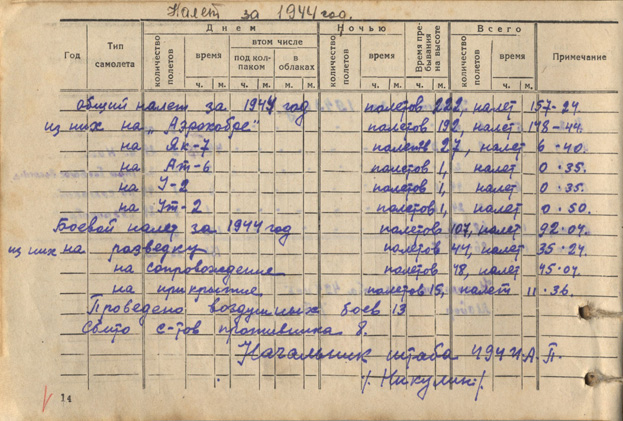 Налет за 1944 год.
Год
Тип самолета
Днем
Ночью
Всего
Примечание
количество полетов
время
ч. м.
в том числе
под колпаком
ч. м.
в облаках
ч. м.
количество полетов
время
ч. м.
Время пребывания на высоте
ч. м.
количество полетов
время
ч. м.
общий налет за 1944 год полетов 222, налет 157-24
из них на „Аэрокобре" полетов 192, налет 148-44.
на Як-7 полетов 27, налет 6·40.
на Ат-6 полетов 1, налет 0·35.
на У-2 полетов 1, налет 0·35.
на Ут-2 полетов 1, налет 0·50.
Боевой налет за 1944 год полетов 107, налет 92·07.
из них на разведку полетов 44, налет 35·24
на сопровождение полетов 48, налет 45·07.
на прикрытие полетов 15, налет 11·36.
Проведено воздушных боев 13
Сбито с-тов противника 8.
Начальник штаба 494 И.А.П.
/Никулин/.
14